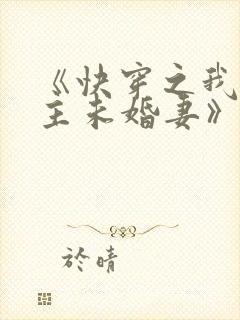 《快穿之我
主未婚妻》
於晴